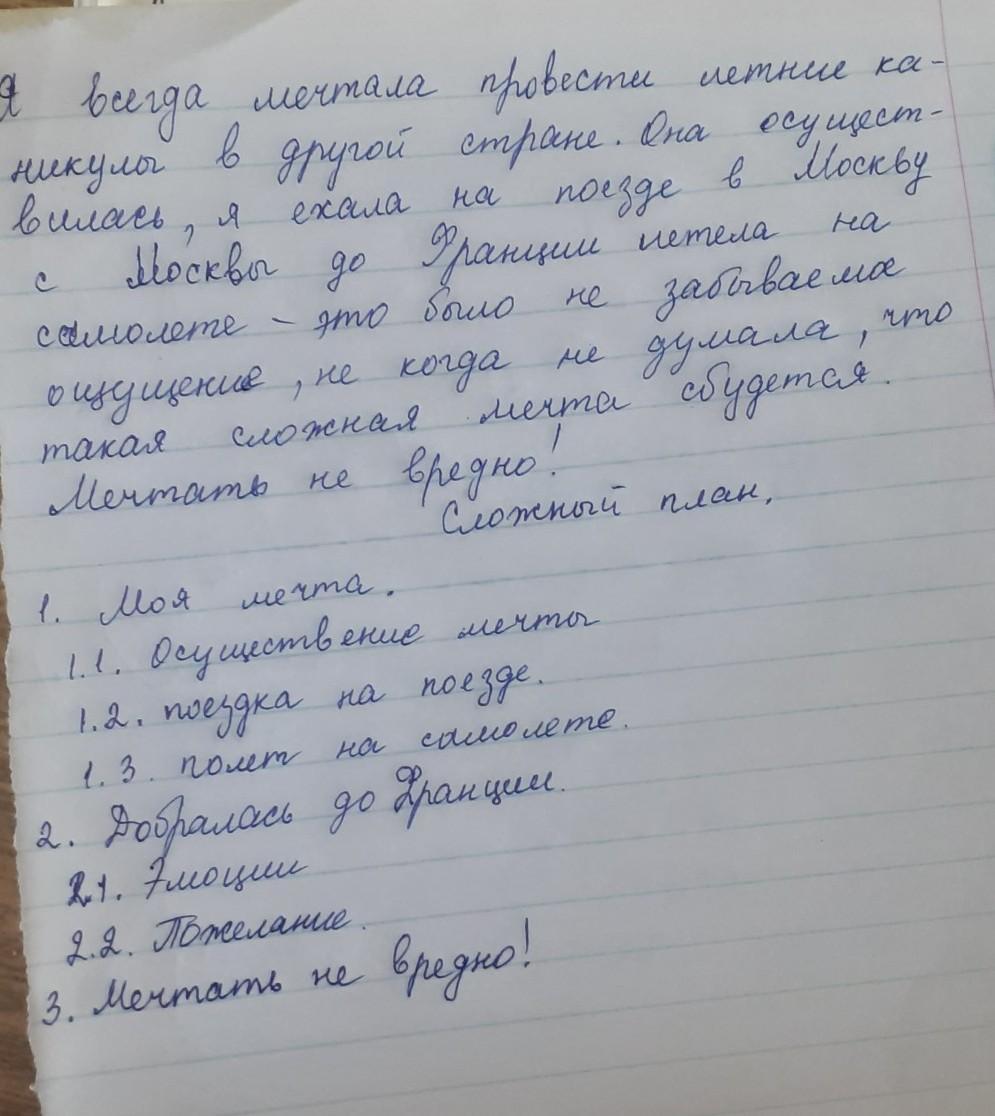 Я всегда мечтала провести летние ка-
никулы в другой стране. Она осущест-
вилась, я ехала на поезде в Москву
с Москвы до Франции летела на
самолете – это было не забываемое
ощущение, не когда не думала, что
такая сложная мечта сбудется.
Мечтать не вредно!
Сложный план.
1. Моя мечта.
1.1. Осуществение мечты
1.2. поездка на поезде.
1.3. полет на самолете.
2. Добралась до Франции.
2.1. Эмоции
2.2. Пожелание.
3. Мечтать не вредно!